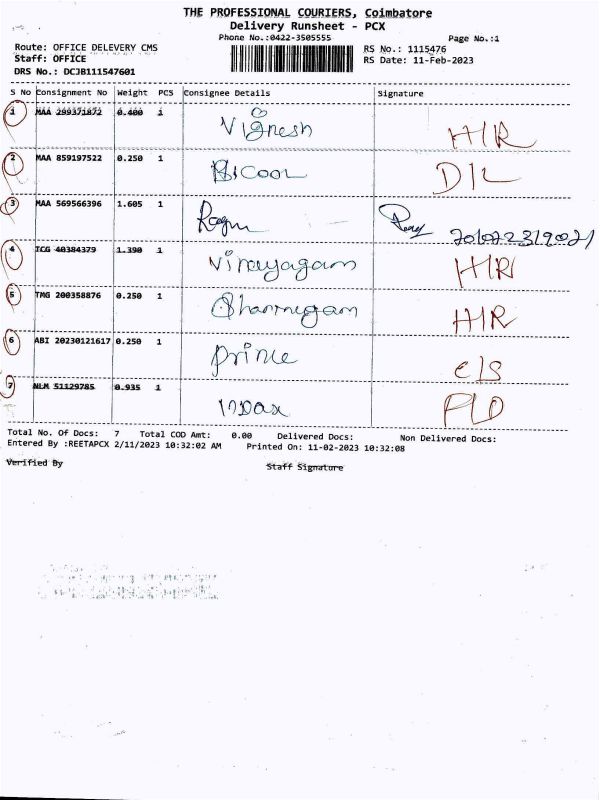 THE PROFESSIONAL COURIERS, Coimbatore
Delivery Runsheet - PCX
Phone No.:0422-3505555
Page No.:1
Route: OFFICE DELEVERY CMS
RS No.: 1115476
Staff: OFFICE
RS Date: 11-Feb-2023
DRS No.: DCJB111547601
S No Consignment No Weight PCS Consignee Details Signature
1 MAA 299371872 0.400 1 Vignesh H/R
2 MAA 859197522 0.250 1 D/L
3 MAA 569566396 1.605 1
4 ICG 40384379 1.390 1 Vinayagam H/R
5 TMG 200358876 0.250 1 Shanmugam H/R
6 ABI 20230121617 0.250 1 Prince C/S
7 NLM 51129785 0.935 1
Total No. Of Docs: 7 Total COD Amt: 0.00 Delivered Docs: Non Delivered Docs:
Entered By :REETAPCX 2/11/2023 10:32:02 AM Printed On: 11-02-2023 10:32:08
Verified By Staff Signature